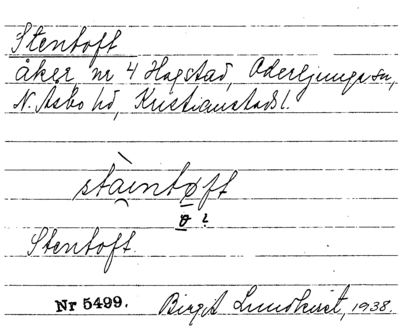 Stentoft
åker nr 4 Hagstad, Oderljunga sn,
N. Åsbo hd, Kristianstads l.
stàintøft
ɵ ?
Stentoft
Nr 5499. Birgit Lundkvist, 1938.